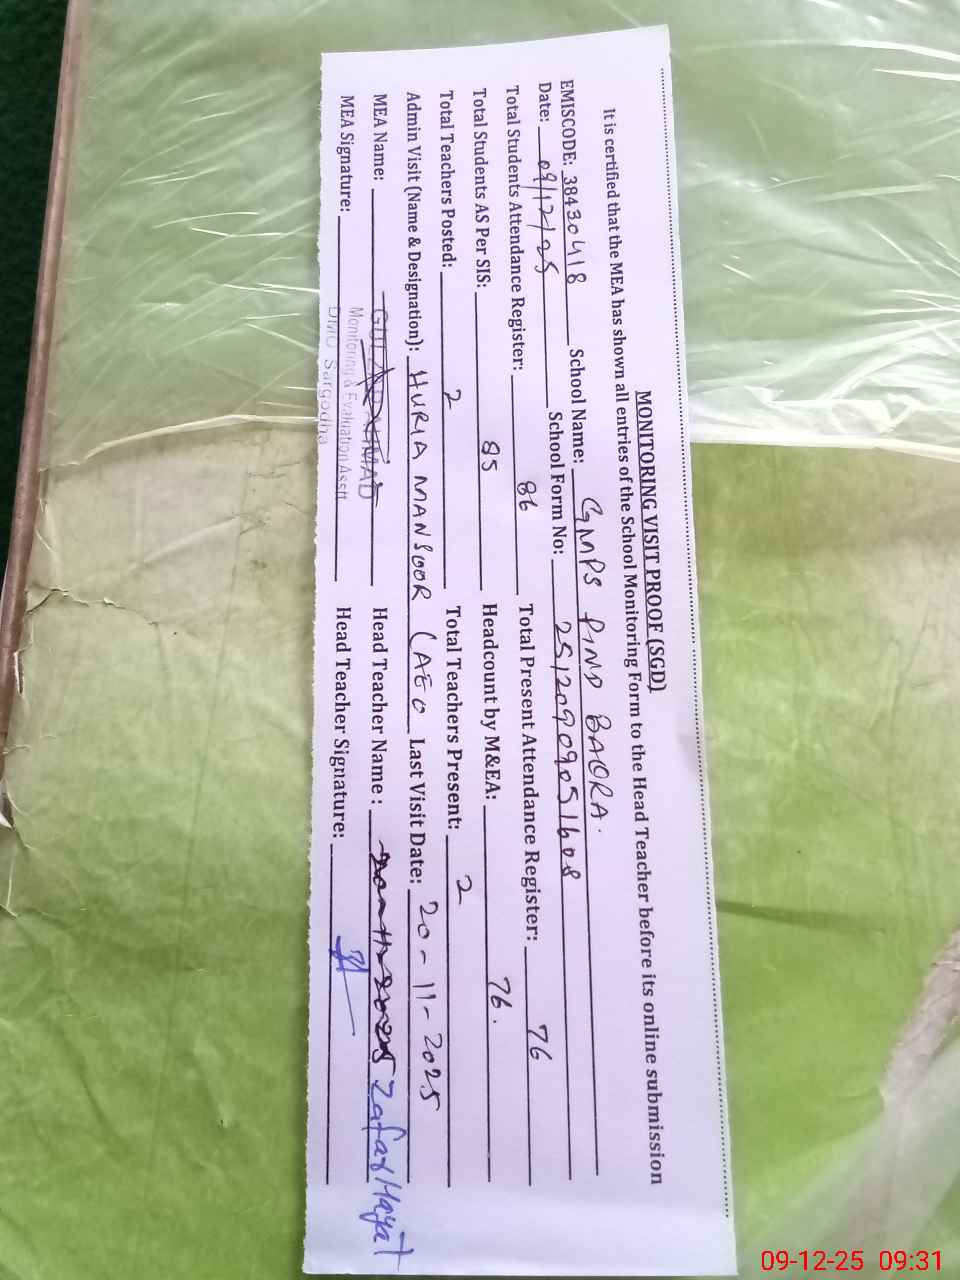 MONITORING VISIT PROOF (SGD)
It is certified that the MEA has shown all entries of the School Monitoring Form to the Head Teacher before its online submission
EMISCODE: 38430418 School Name: GMPS PIND BAQRA.
Date: 09/12/25 School Form No: 25120909051608
Total Students Attendance Register: 86 Total Present Attendance Register: 76
Total Students AS Per SIS: 85 Headcount by M&EA: 76.
Total Teachers Posted: 2 Total Teachers Present: 2
Admin Visit (Name & Designation): HURIA MANSOOR (AEO Last Visit Date: 20-11-2025
MEA Name: GUL AHMAD Head Teacher Name : Zafar Hayat
Monitoring & Evaluation Asstt
MEA Signature: Head Teacher Signature:
DMO Sargodha
09-12-25 09:31